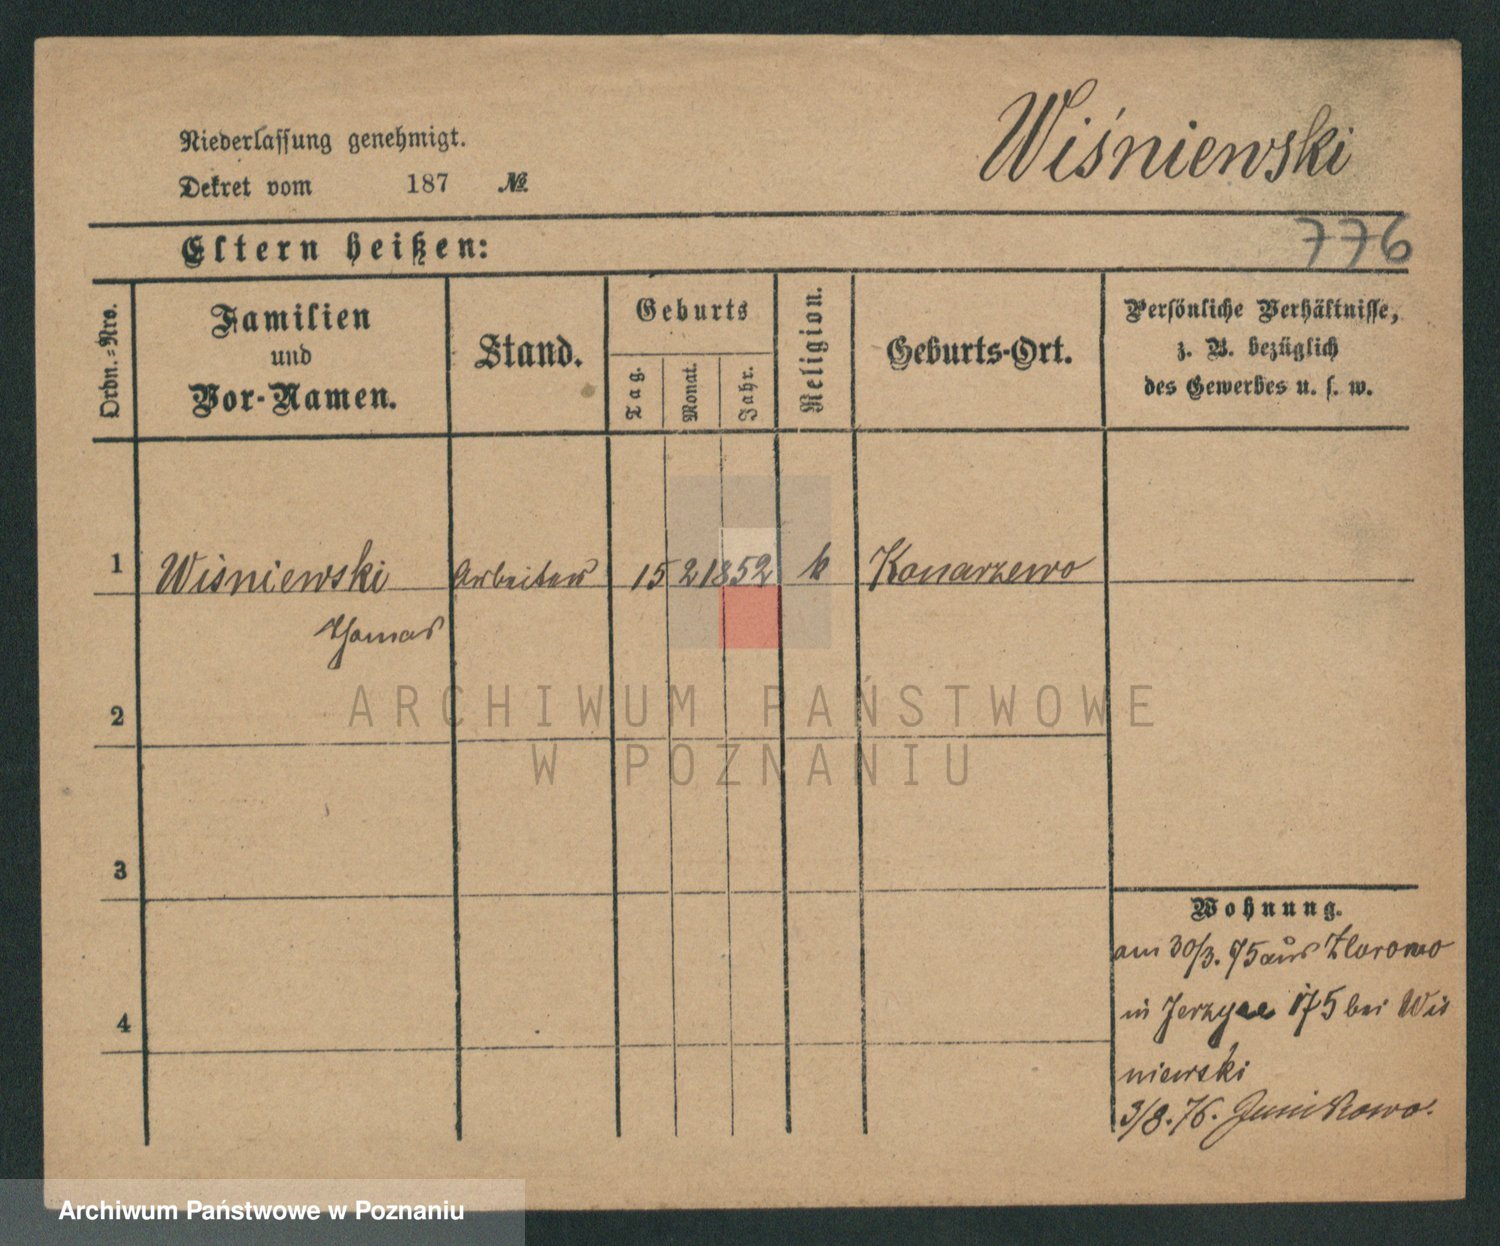 Wiśniewski
Niederlassung genehmigt.
Dekret vom 187 №
776
Eltern heißen:
Ordn.-Nro.
Familien
und
Vor-Namen.
Stand.
Geburts
Tag.
Monat.
Jahr.
Religion.
Geburts-Ort.
Persönliche Verhältnisse,
z. B. bezüglich
des Gewerbes u. s. w.
1 Wiśniewski Arbeiter 15 2 1852 k Konarzewo
Thomas
2
ARCHIWUM PAŃSTWOWE
W POZNANIU
3
Wohnung.
am 30/3. 75 aus
4
in 175 bei Wis
niewski
3/8. 76. Junikowo.
Archiwum Państwowe w Poznaniu